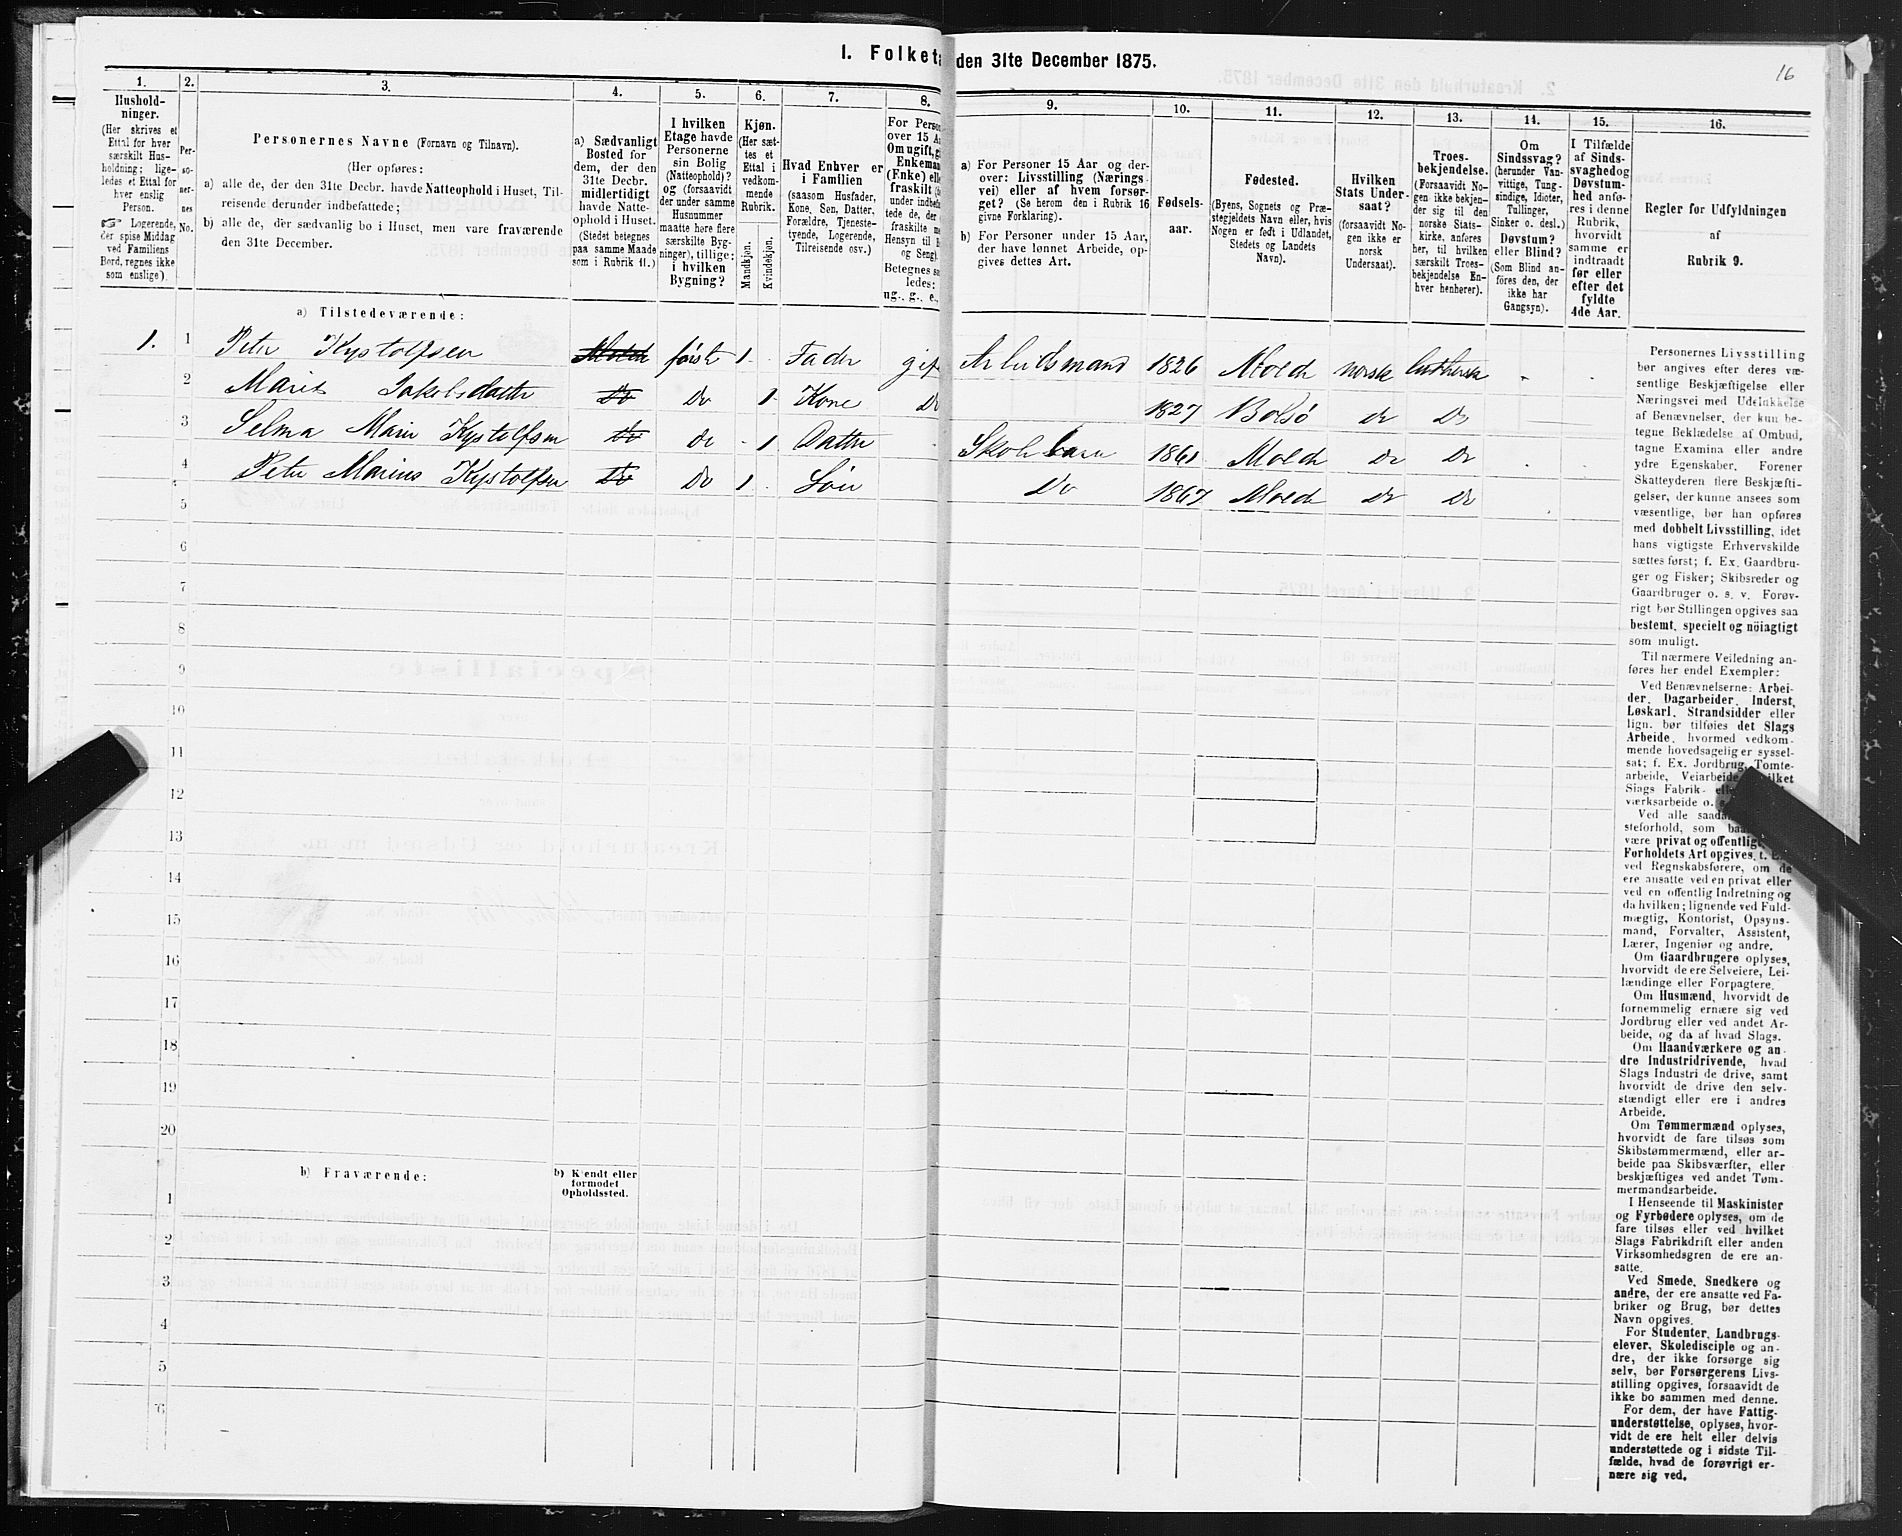 I. Folketæ den 31te December 1875.
16
1.
Hushold-
ninger.
(Her skrives et
Ettal for hver
særskilt Hus-
holdning; lige-
ledes et Ettal for
hver enslig
Person.
☞ Logerende,
der spise Middag
ved Familiens
Bord, regnes ikke
som enslige).
2.
Per-
so-
ner-
nes
No.
3.
Personernes Navne (Fornavn og Tilnavn).
(Her opføres:
a) alle de, der den 31te Decbr. havde Natteophold i Huset, Til-
reisende derunder indbefattede;
b) alle de, der sædvanlig bo i Huset, men vare fraværende
den 31te December.
4.
a) Sædvanligt
Bosted for
dem, der den
31te Decbr.
midlertidigt
havde Natte-
ophold i Huset.
(Stedet betegnes
paa samme Maade
som i Rubrik 11.)
5.
I hvilken
Etage havde
Personerne
sin Bolig
(Natteophold)?
og (forsaavidt
der under samme
Husnummer
maatte høre flere
særskilte Byg-
ninger), tillige:
i hvilken
Bygning?
6.
Kjøn.
(Her sæt-
tes et
Ettal i
vedkom-
mende
Rubrik.
Mandkjøn.
Kvindekjøn.
7.
Hvad Enhver er
i Familien
(saasom Husfader,
Kone, Søn, Datter,
Forældre, Tjeneste-
tyende, Logerende,
Tilreisende osv.)
8.
For Person
over 15 A
Om ugift, g
Enkeman
(Enke) elle
fraskilt
under indbef
tede de, der
fraskilte
Hensyn til B
og Seng).
Betegnes s
ledes:
ug., g., e.,
9.
a) For Personer 15 Aar og der-
over: Livsstilling (Nærings-
vei) eller af hvem forsør-
get? (Se herom den i Rubrik 16
givne Forklaring).
b) For Personer under 15 Aar,
der have lønnet Arbeide, op-
gives dettes Art.
10.
Fødsels-
aar.
11.
Fødested.
(Byens, Sognets og Præ-
stegjeldets Navn eller, hvis
Nogen er født i Udlandet,
Stedets og Landets
Navn).
12.
Hvilken
Stats Under-
saat?
(forsaavidt No-
gen ikke er
norsk
Undersaat).
13.
Troes-
bekjendelse.
(Forsaavidt No-
gen ikke bekjen-
der sig til den
norske Stats-
kirke, anføres
her, til hvilken
særskilt Troes-
bekjendelse En-
hver henhører).
14.
Om
Sindssvag?
(herunder Van-
vittige, Tung-
sindige, Idioter,
Tullinger,
Sinker o. desl.)
Døvstum?
eller Blind?
(Som Blind an-
føres den, der
ikke har
Gangsyn).
15.
I Tilfælde
af Sinds-
svaghed og
Døvstum-
hed anfø-
res i denne
Rubrik,
hvorvidt
samme er
indtraadt
før eller
efter det
fyldte
4de Aar.
16.
Regler for Udfyldningen
af
Rubrik 9.
a) Tilstedeværende:
1. 1 Peter Kystolfsen Molde først 1 Fader gif Arbeidsmand 1826 Molde norsk luthersk
2 Marit Jakobsdatter Do Do 1 Kone Do 1827 Bolsø Do Do
3 Selma Marie Kystolfsen Do Do 1 Datter Skolebarn 1861 Molde Do Do
4 Peter Marius Kystolfsen Do Do 1 Søn Do 1867 Molde Do Do
5
6
7
8
9
10
11
12
13
14
15
16
17
18
19
20
b) Fraværende:
b) Kjendt eller
formodet
Opholdssted.
1
2
3
4
5
6
Personernes Livsstilling
bør angives efter deres væ-
sentlige Beskjæftigelse eller
Næringsvei med Udelukkelse
af Benævnelser, der kun be-
tegne Beklædelse af Ombud,
tagne Examina eller andre
ydre Egenskaber. Forener
Skatteyderen flere Beskjæfti-
gelser, der kunne ansees som
væsentlige, bør han opføres
med dobbelt Livsstilling, idet
hans vigtigste Erhvervskilde
sættes først; f. Ex. Gaardbru-
ger og Fisker; Skibsreder og
Gaardbruger o. s. v. Forøv-
rigt bør Stillingen opgives saa
bestemt, specielt og nöiagtigt
som muligt.
Til nærmere Veiledning an-
føres her endel Exempler:
Ved Benævnelserne: Arbei-
der, Dagarbeider, Inderst,
Løskarl, Strandsidder eller
lign. bør tilføies det Slags
Arbeide, hvormed vedkom-
mende hovedsagelig er syssel-
sat; f. Ex. Jordbrug, Tomte-
arbeide, Veiarbeide, hvilket
Slags Fabrik- elle
værksarbeide o. s.
Ved alle saada
steforhold, som baa
være privat og offentlig
Forholdets Art opgives, t. Ex.
ved Regnskabsførere, om de
ere ansatte ved en privat eller
ved en offentlig Indretning og
da hvilken; lignende ved Fuld-
mægtig, Kontorist, Opsyns-
mand, Forvalter, Assistent,
Lærer, Ingeniør og andre.
Om Gaardbrugere oplyses,
hvorvidt de ere Selveiere, Lei-
lændinge eller Forpagtere.
Om Husmænd, hvorvidt de
fornemmelig ernære sig ved
Jordbrug eller ved andet Ar-
beide, og da af hvad Slags.
Om Haandværkere og an-
dre Industridrivende, hvad
Slags Industri de drive, samt
hvorvidt de drive den selv-
stændigt eller ere i andres
Arbeide.
Om Tømmermænd oplyses,
hvorvidt de fare tilsøs som
Skibstømmermænd, eller ar-
beide paa Skibsværfter, eller
beskjæftiges ved andet Tøm-
mermandsarbeide.
I Henseende til Maskinister
og Fyrbødere oplyses, om de
fare tilsøs eller ved hvilket
Slags Fabrikdrift eller anden
Virksomhedsgren de ere an-
satte.
Ved Smede, Snedkere og
andre, der ere ansatte ved Fa-
briker og Brug, bør dettes
Navn opgives.
For Studenter, Landbrugs-
elever, Skoledisciple og an-
dre, der ikke forsørge sig
selv, bør Forsørgerens Livs-
stilling opgives, forsaavidt de
ikke bo sammen med denne.
For dem, der have Fattig-
understøttelse, oplyses, hvor-
vidt de ere helt eller delvis
understøttede og i sidste Til-
fælde, hvad de forøvrigt er-
nære sig ved.